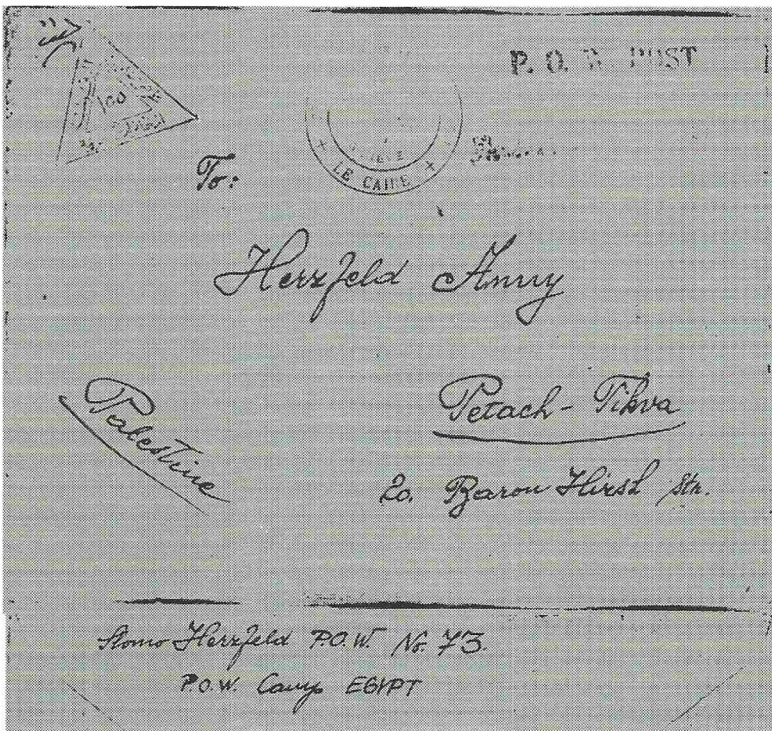 P. O. W. POST
100
LE CAIRE
To:
Herzfeld Anny
Palestine
Petach-Tikva
20. Baron Hirsh Str.
Slomo Herzfeld P.O.W. No. 73.
P.O.W. Camp EGYPT